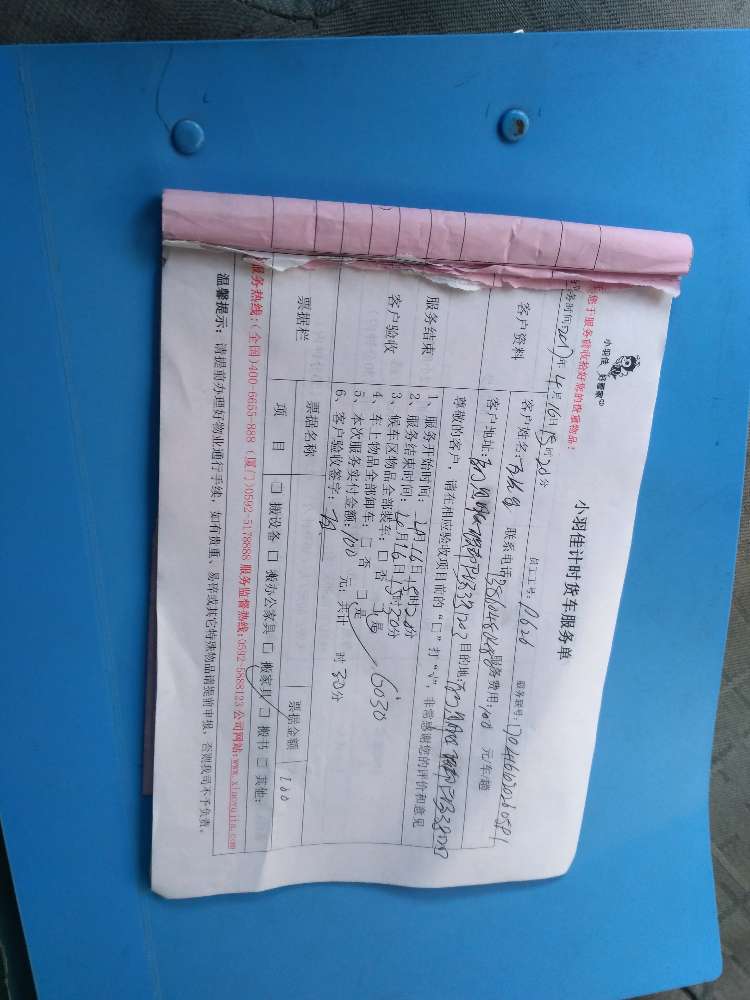 小羽佳 好管家
小羽佳计时货车服务单
您于服务前收拾好您的贵重物品!
员工工号: 服务联号:
服务时间:2017年4月16日15时20分
客户资料
客户姓名: 联系电话 服务费用:100 元/车/趟
客户地址: 目的地:
尊敬的客户,请在相应验收项目前的“□”打“√”,非常感谢您的评价和意见
服务结束
客户验收
1、服务开始时间: 4月16日15时20分
2、服务结束时间: 4月16日15时50分
3、候车区物品全部装车:□ 否 □ 是
4、车上物品全部卸车:□ 否 □ 是
5、本次服务实付金额:100 元;共计 时30分
6030
6、客户验收签字:
票据栏
票据名称 票据金额 100
项 目 □ 搬设备 □ 搬办公家具 □ 搬家具 □ 搬书 □ 其他:
服务热线:(全国)400-6655-888 (厦门)0592-5178888 服务监督热线:0592-5888123 公司网站:www.xiaoyujia.com
温馨提示: 请提前办理好物业通行手续,如有贵重、易碎或其它特殊物品请提前申报,否则我司不予负责。